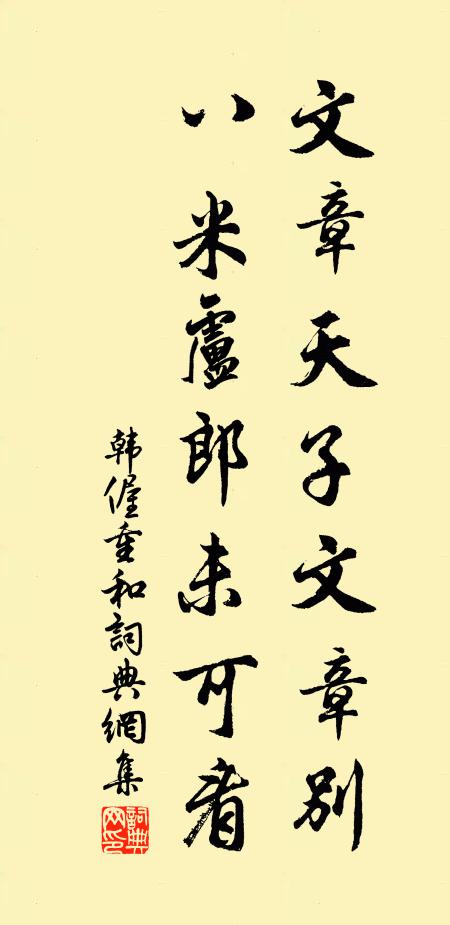 文章天子文章別
八米盧郎未可看
韩偓重和詞典網集
詞典网印